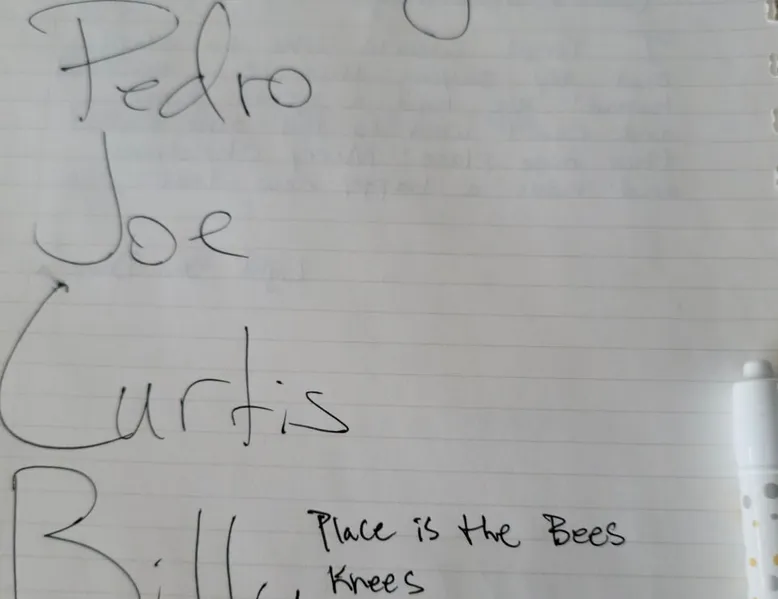 Pedro
Joe
Curtis
Place is the Bees
Knees